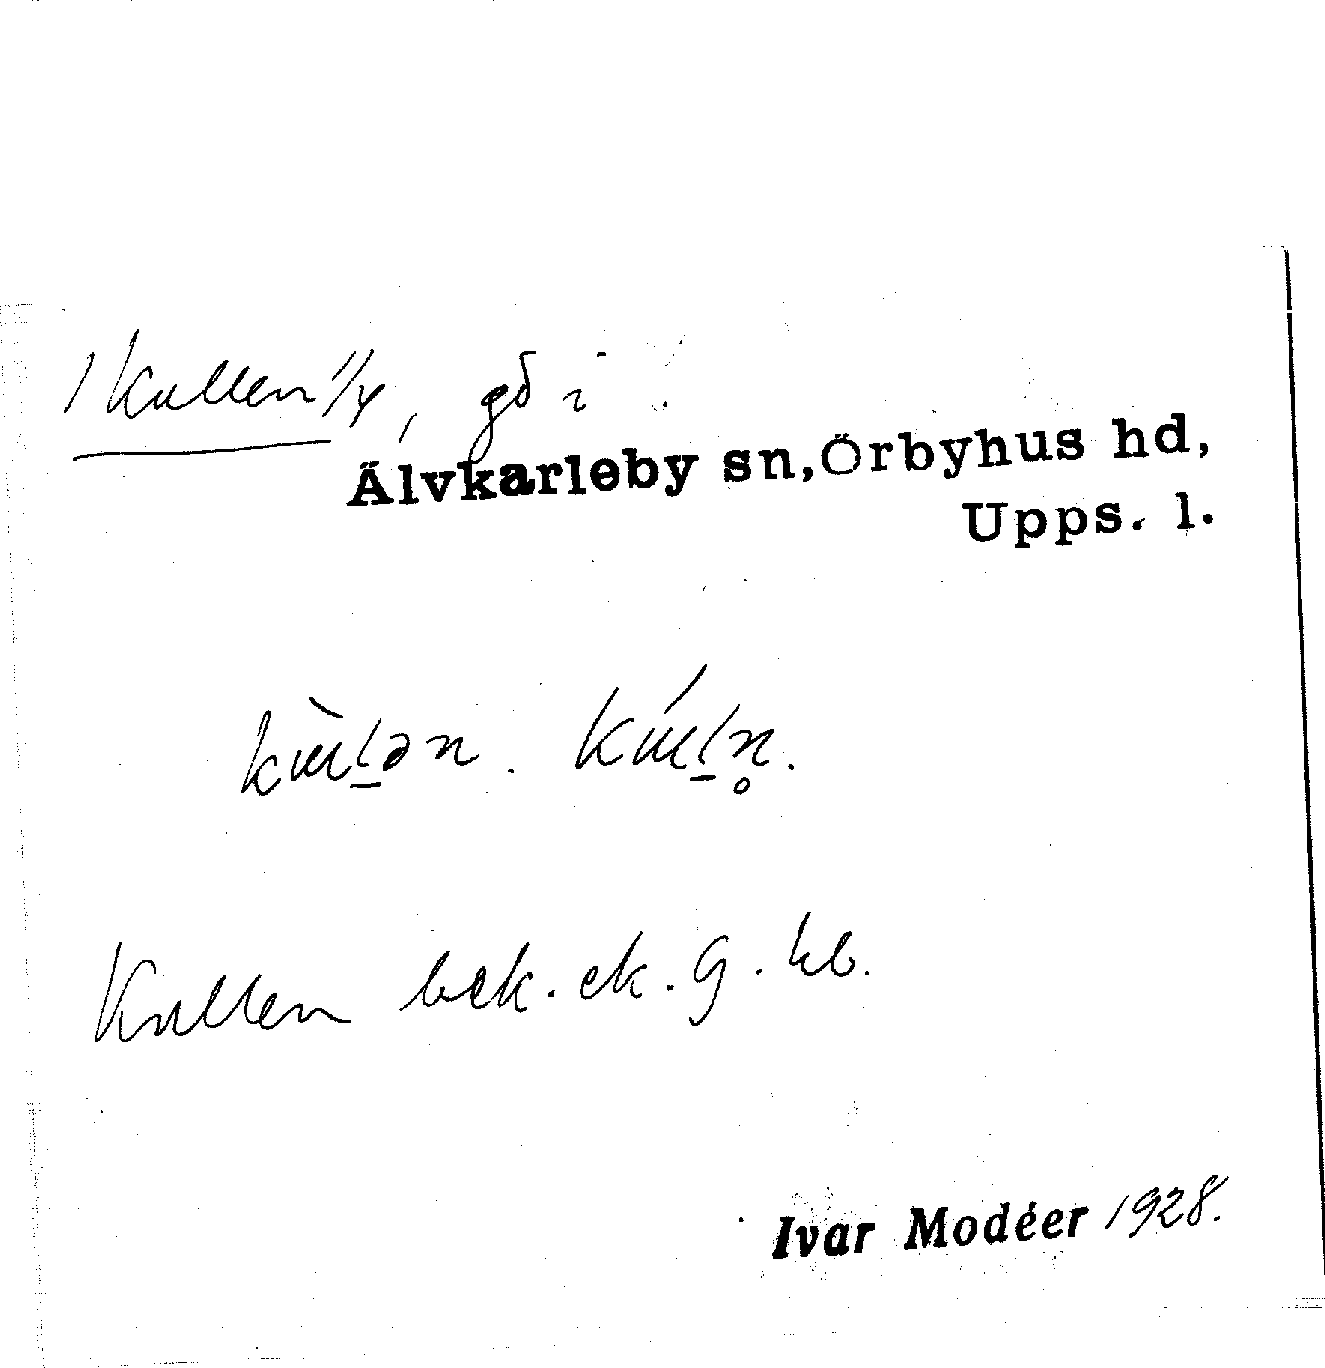 1 Kullen 1/4, gd i
Älvkarleby sn, Örbyhus hd,
Upps. l.
kɯ̀l̠ən. kɯ́l̠n̥.
Kullen bek. ek. G. kb.
Ivar Modéer 1928.